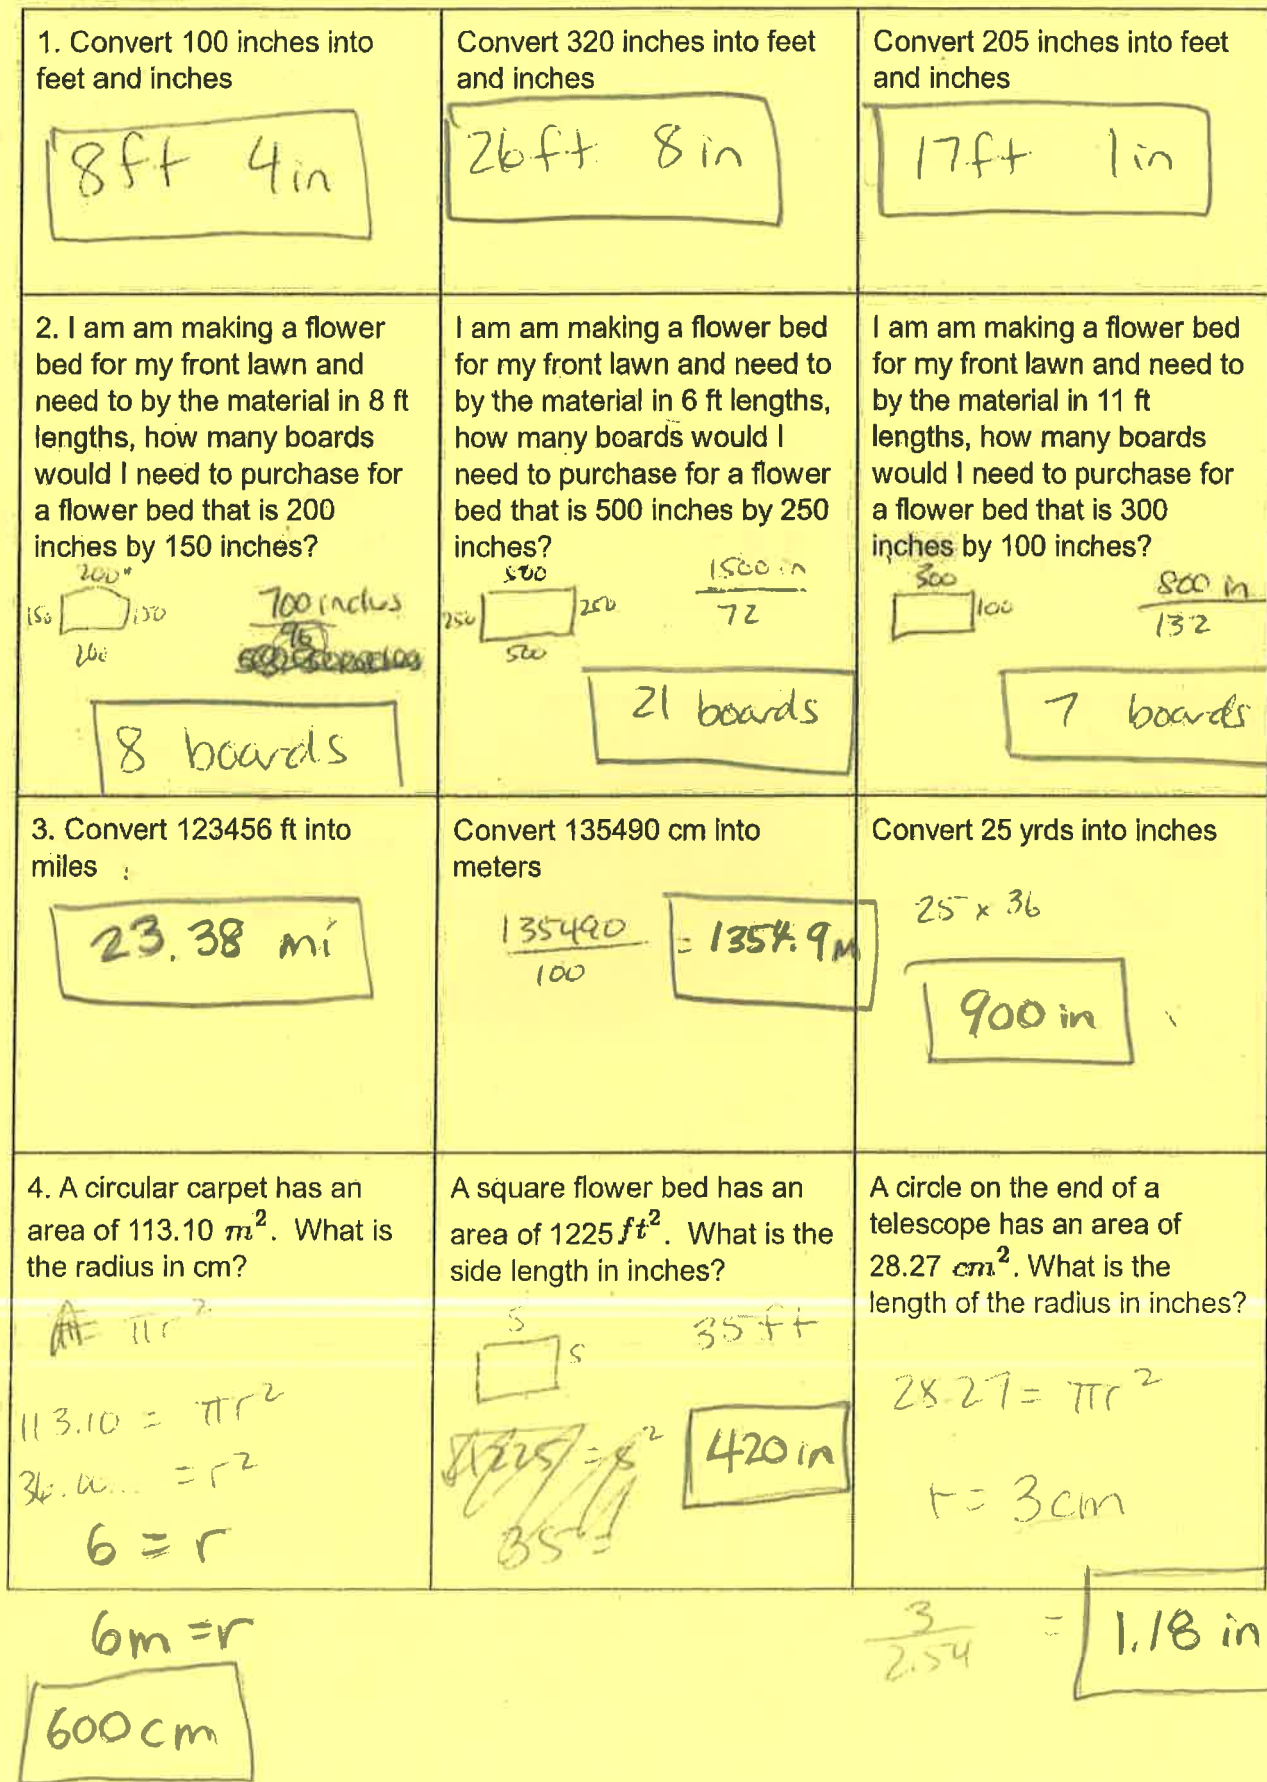 1. Convert 100 inches into
feet and inches
8ft 4in
Convert 320 inches into feet
and inches
26ft 8in
Convert 205 inches into feet
and inches
17ft 1in
2. I am am making a flower
bed for my front lawn and
need to by the material in 8 ft
lengths, how many boards
would I need to purchase for
a flower bed that is 200
inches by 150 inches?
200"
150 150
200
700 inches
96
8 boards
I am am making a flower bed
for my front lawn and need to
by the material in 6 ft lengths,
how many boards would I
need to purchase for a flower
bed that is 500 inches by 250
inches?
500
250 250
500
1500 in
72
21 boards
I am am making a flower bed
for my front lawn and need to
by the material in 11 ft
lengths, how many boards
would I need to purchase for
a flower bed that is 300
inches by 100 inches?
300
100
800 in
132
7 boards
3. Convert 123456 ft into
miles
23.38 mi
Convert 135490 cm into
meters
135490
100
= 1354.9 m
Convert 25 yrds into inches
25 x 36
900 in
4. A circular carpet has an
area of 113.10 m². What is
the radius in cm?
A= πr²
113.10 = πr²
36.00... = r²
6 = r
6m = r
600 cm
A square flower bed has an
area of 1225 ft². What is the
side length in inches?
s
s
35ft
420 in
A circle on the end of a
telescope has an area of
28.27 cm². What is the
length of the radius in inches?
28.27 = πr²
r = 3cm
3
2.54
= 1.18 in